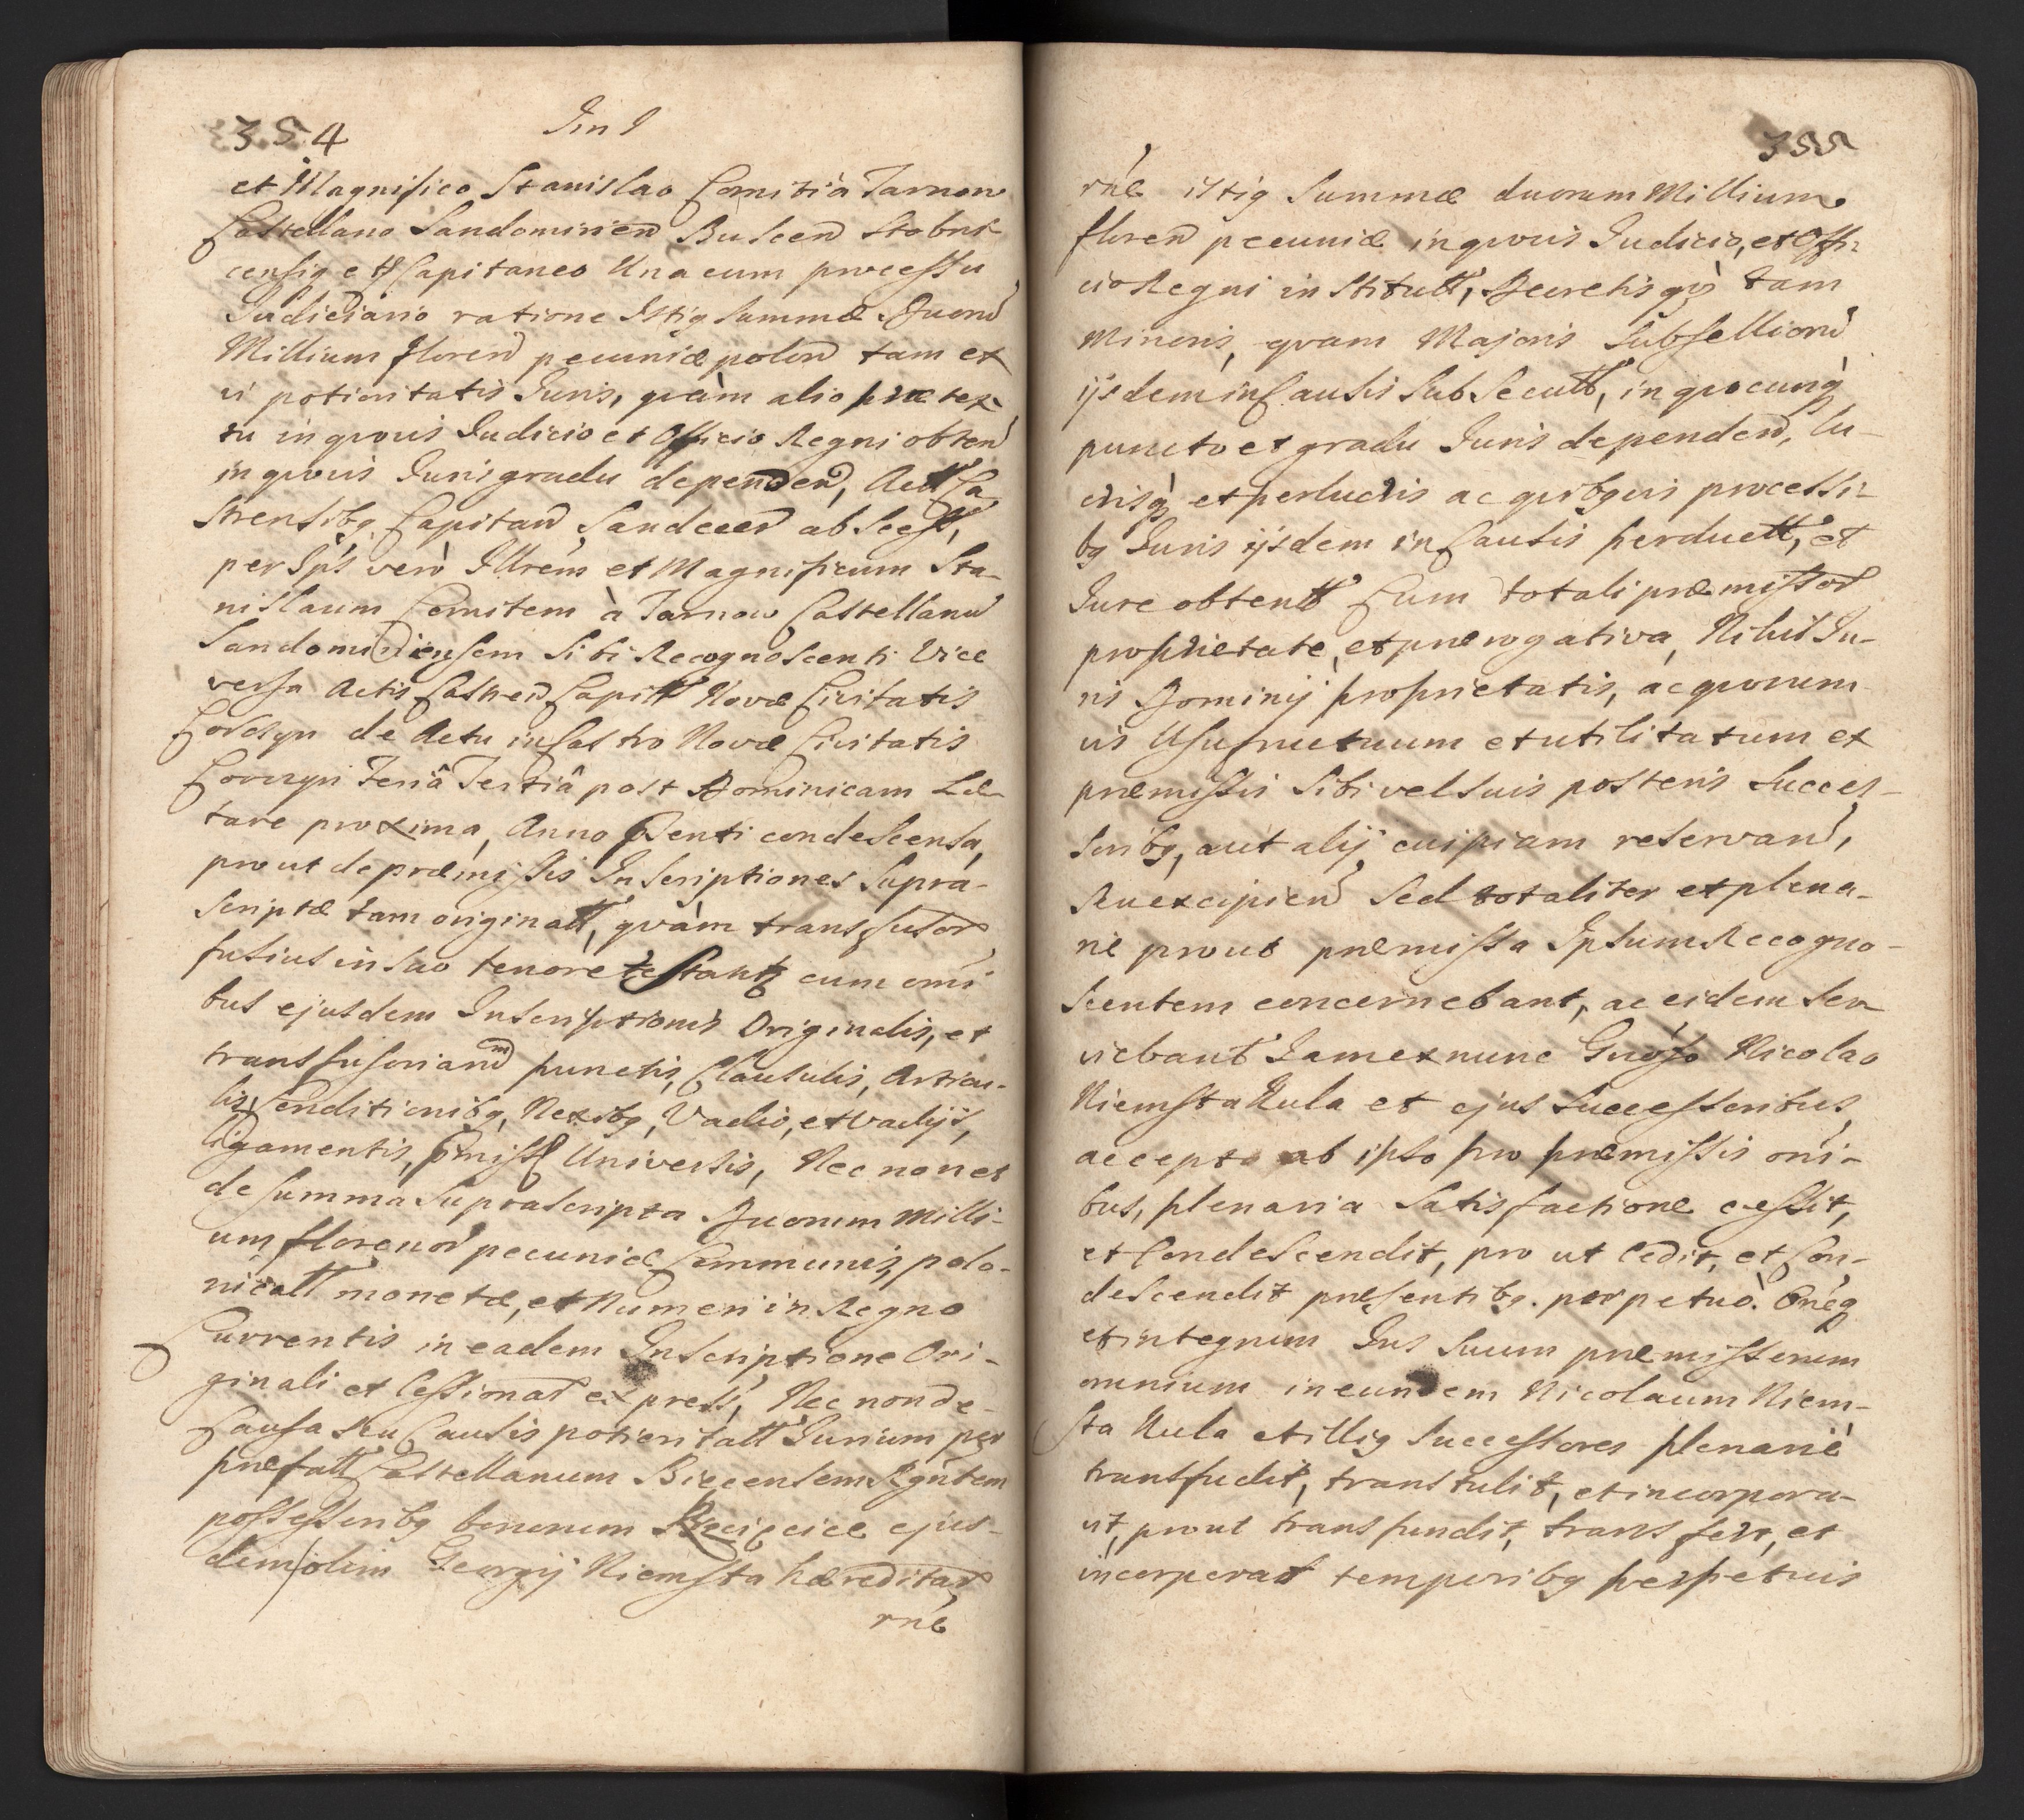 354
et Magnifico Stanislao Comiti à Tarnow
Castellano Sandomirien Buscen Stobni-
censiq et Capitaneo Una cum processu
Judiciario ratione Istiq summæ Duoru
Millium Floren pecuniæ polon tam ex
vi potioritatis Juris, qvàm alio prætex-
tu in qvovis Judicio et Officio Regni obten
in qvovis Juris gradu dependen, Actt Ca
strensibq Capitan Sandecen ab
per Ips verò Illrem et Magnificum Sta-
nislaum Comitem à Tarnow Castellanu
Sandomiriensem Sibi Recognoscenti Vice
versa Actis Castren Capitt Novæ Civitatis
Corczyn de Actu in Castro Novæ Civitatis
Corczyn Feriâ Tertiâ post Dominicam Læ-
tare proxima, Anno pnti condescensa,
prout de præmissis Inscriptiones Supra-
scriptæ tam originatt, qvàm transfusor
fusius in suo tenore testantq cum omi
bus ejusdem Inscriptionis Originalis, et
transfusoriaru punctis, Clausulis, Articu-
lis, Conditionibq, Nexibq, Vadio, et vadijs,
ligamentis, pmiss Universis, Nec non et
de summa Suprascripta Duorum Milli-
um florenor pecuniæ Communis, polo-
nicatt monetæ, et Numeri in Regno
Currentis in eadem Inscriptione Ori-
ginali et Cessionat express, Nec non de
Causa seu Causis potioritatt Jurium per
præfatt Castellanum Biecensem Agntem
possessoribq bonorum ejus-
dem olim Georgij Niemsta hæreditar
rne
355
rne istiq Summæ duorum Millium
floren pecuniæ in qvovis Judicio, et Offi-
cio Regni institutt, Decretis qz tam
Minoris, qvam Majoris Subsellioru
ijsdem in Causis Subsecutt, in qvocunqz
puncto et gradu Juris dependen, lu-
crisqz et perlucris ac qvibqvis processi-
bq Juris ijsdem in Causis perductt, et
Jure obtentt Cum totali præmissor
proprietate, et prærogativa, Nihil Ju-
ris Dominij proprietatis, ac qvorum-
vis Usufructuum et utilitatum ex
præmissis Sibi vel suis posteris Succes-
soribq, aut alij cuipiam reservan,
seu excipien Sed totaliter et plena-
rie prout præmissa Ipsum Recogno-
scentem concernebant, ac eidem ser-
viebant Jam ex nunc Gnoso Nicolao
Niemsta Kula et ejus Successoribus,
accepta ab ipso pro præmissis oni-
bus, plenaria Satisfactione cessit,
et Condescendit, pro ut Cedit, et Con-
descendit præsentibq. perpetuò. Oneq
et integrum Jus Suum præmissorum
omnium in eundem Nicolaum Niem-
sta Kula et illiq Successores plenariè
transfudit, transtulit, et incorpora-
vit, prout transfundit, transfert, et
incorporat temporibq perpetuis